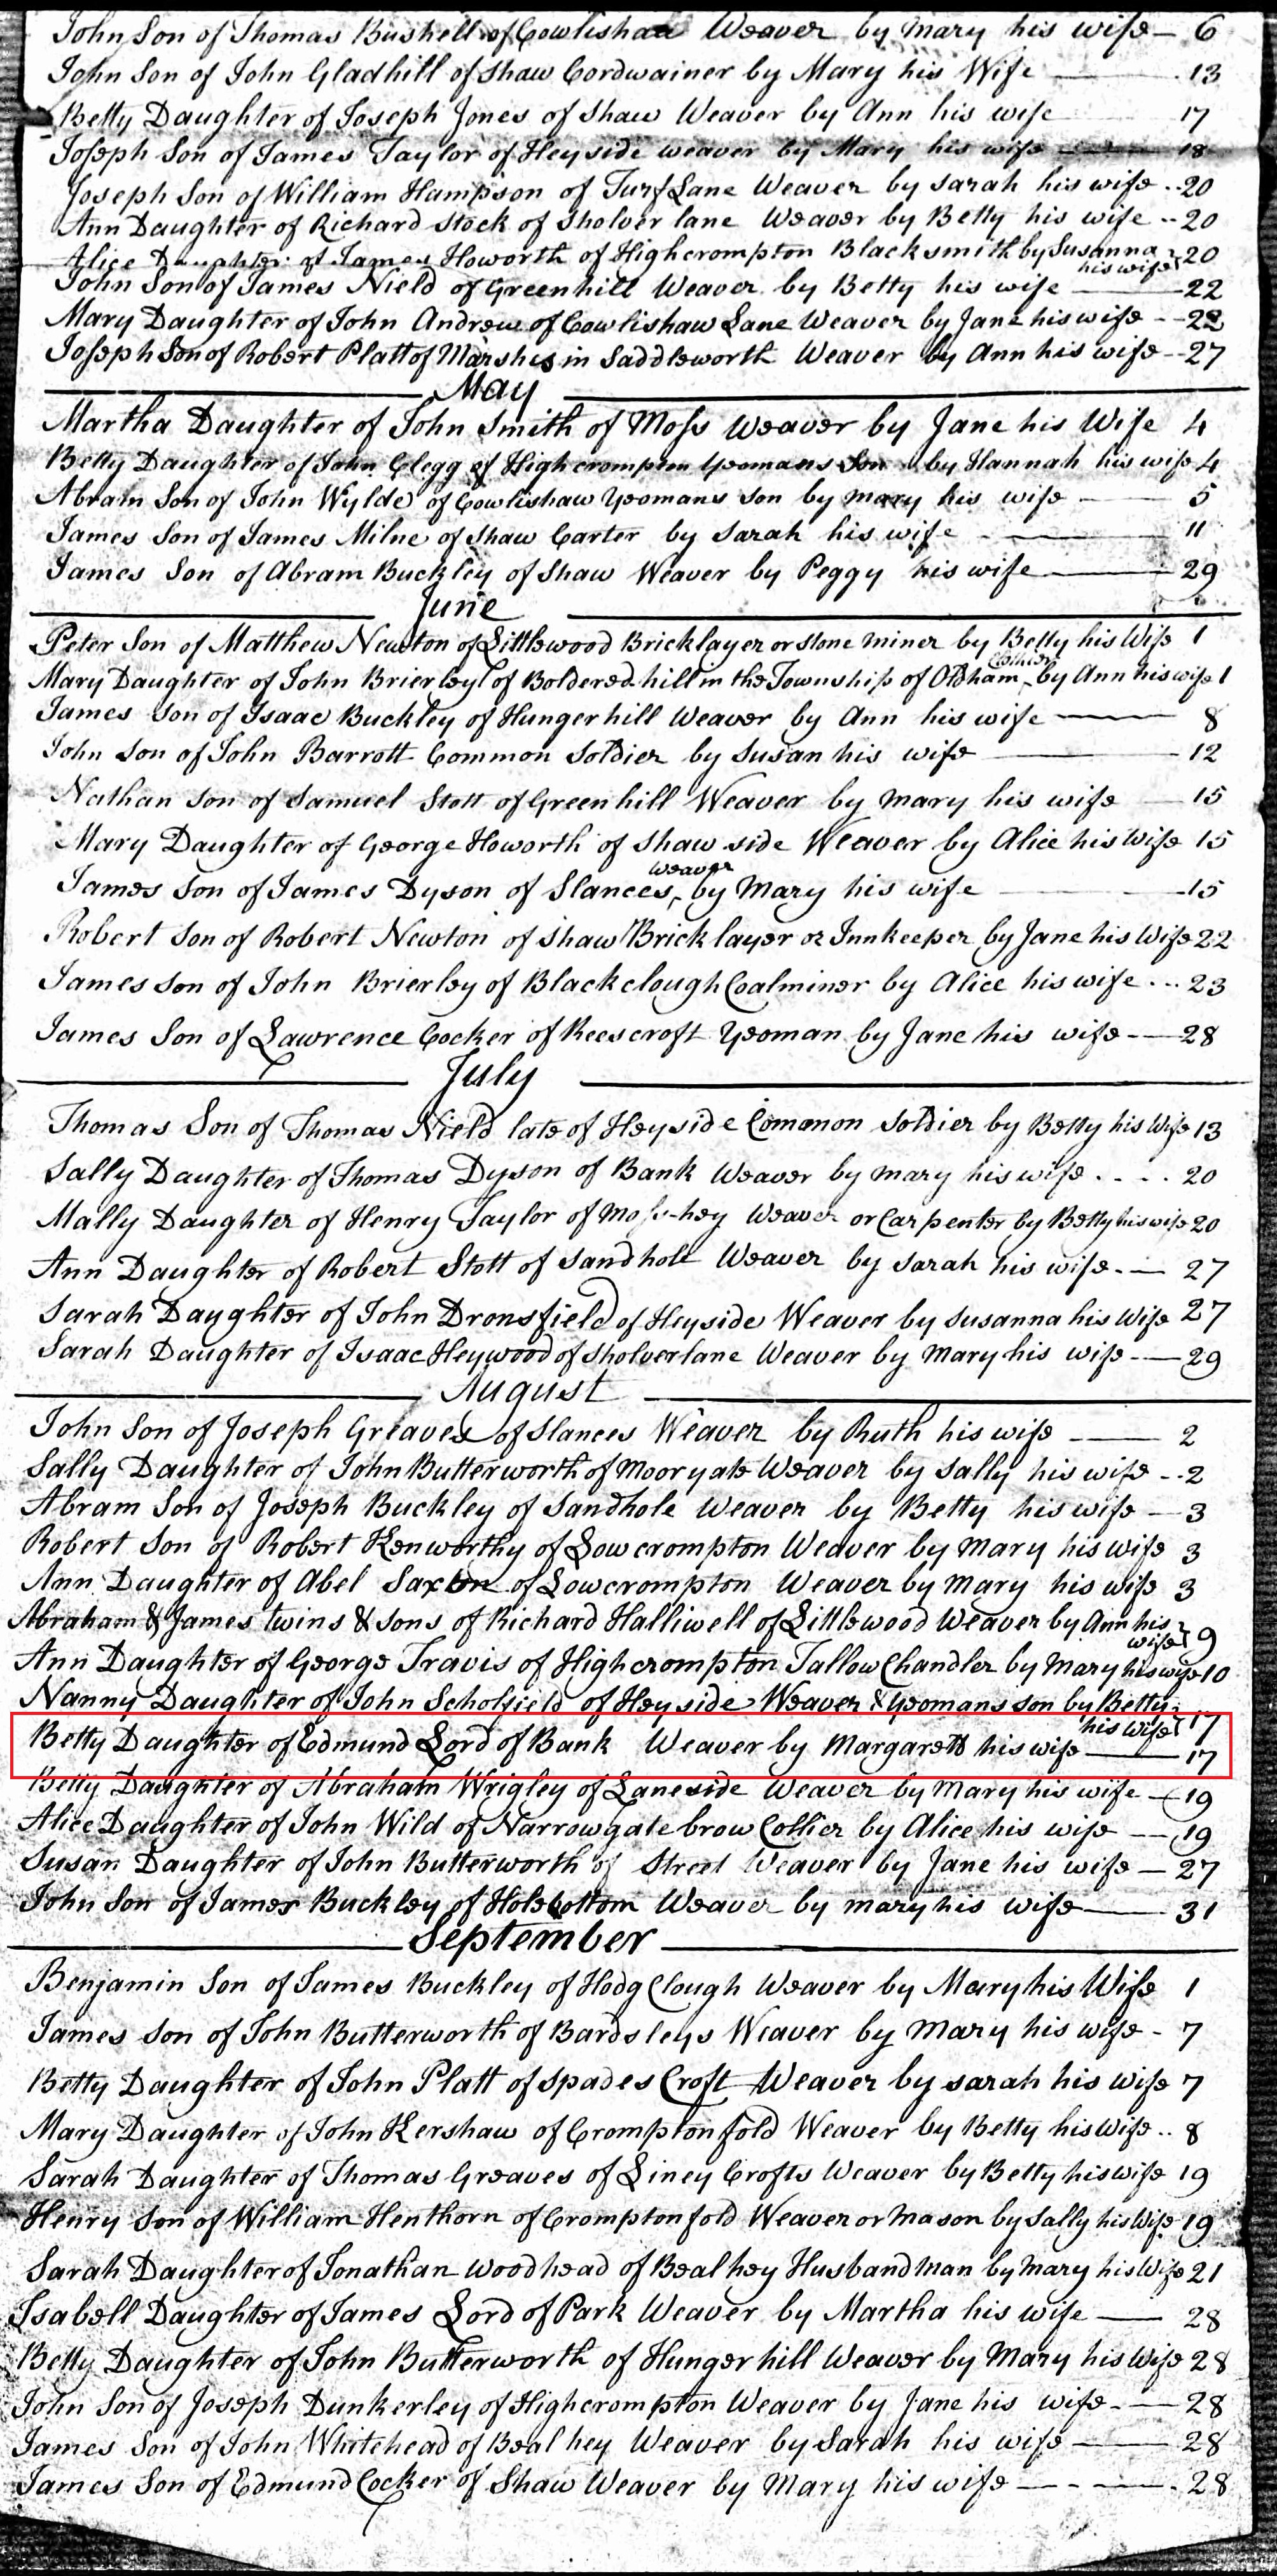 John Son of Thomas Bushell of Cowlishaw Weaver by Mary his wife — 6
John Son of John Gladhill of Shaw Cordwainer by Mary his Wife — 13
Betty Daughter of Joseph Jones of Shaw Weaver by Ann his wife 17
Joseph Son of James Taylor of Heyside weaver by Mary his wife — 18
Joseph Son of William Hampson of Turf Lane Weaver by Sarah his wife -- 20
Ann Daughter of Richard Stock of Sholver lane Weaver by Betty his wife -- 20
Alice Daughter of James Howorth of Highcrompton Blacksmith by Susanna 20
his wife
John Son of James Nield of Greenhill Weaver by Betty his wife — 22
Mary Daughter of John Andrew of Cowlishaw Lane Weaver by Jane his wife -- 22
Joseph Son of Robert Platt of Marshes in Saddleworth Weaver by Ann his wife -- 27
May
Martha Daughter of John Smith of Moss Weaver by Jane his Wife 4
Betty Daughter of John Clegg of Highcrompton Yeomans Son by Hannah his wife 4
Abram Son of John Wylde of Cowlishaw Yeomans son by Mary his wife — 5
James Son of James Milne of Shaw Carter by Sarah his wife — 11
James Son of Abram Buckley of Shaw Weaver by Peggy his wife — 29
June
Peter Son of Matthew Newton of Littlewood Bricklayer or stone miner by Betty his Wife 1
Clothier
Mary Daughter of John Brierley of Boldered hill in the Township of Oldham by Ann his wife 1
James Son of Isaac Buckley of Hunger hill Weaver by Ann his wife — 8
John Son of John Barrott Common Soldier by Susan his wife — 12
Nathan Son of Samuel Stott of Greenhill Weaver by Mary his wife — 15
Mary Daughter of George Howorth of Shaw side Weaver by Alice his Wife 15
weaver
James Son of James Dyson of Slances, by Mary his wife — 15
Robert Son of Robert Newton of Shaw Bricklayer or Innkeeper by Jane his Wife 22
James Son of John Brierley of Blackclough Coalminer by Alice his wife ... 23
James Son of Lawrence Cocker of Reescroft Yeoman by Jane his wife -— 28
July
Thomas Son of Thomas Nield late of Heyside Common Soldier by Betty his Wife 13
Sally Daughter of Thomas Dyson of Bank Weaver by Mary his wife .... 20
Mally Daughter of Henry Taylor of Moss-hey Weaver or Carpenter by Betty his wife 20
Ann Daughter of Robert Stott of Sandhole Weaver by Sarah his wife -— 27
Sarah Daughter of John Dronsfield of Heyside Weaver by Susanna his Wife 27
Sarah Daughter of Isaac Heywood of Sholverlane Weaver by Mary his wife -— 29
August
John Son of Joseph Greaves of Slances Weaver by Ruth his wife — 2
Sally Daughter of John Butterworth of Moorgate Weaver by Sally his wife -- 2
Abram Son of Joseph Buckley of Sandhole Weaver by Betty his wife — 3
Robert Son of Robert Kenworthy of Lowcrompton Weaver by Mary his wife 3
Ann Daughter of Abel Saxon of Lowcrompton Weaver by Mary his wife 3
Abraham & James twins & sons of Richard Halliwell of Littlewood Weaver by Ann his
wife 9
Ann Daughter of George Travis of Highcrompton Tallow Chandler by Mary his wife 10
Nanny Daughter of John Scholfield of Heyside Weaver & Yeomans son by Betty
his Wife 17
Betty Daughter of Edmund Lord of Bank Weaver by Margarett his wife — 17
Betty Daughter of Abraham Wrigley of Laneside Weaver by Mary his wife — 19
Alice Daughter of John Wild of Narrowgate brow Collier by Alice his wife — 19
Susan Daughter of John Butterworth of Street Weaver by Jane his wife — 27
John Son of James Buckley of Holebottom Weaver by Mary his wife — 31
September
Benjamin Son of James Buckley of Hodg Clough Weaver by Mary his Wife 1
James Son of John Butterworth of Bardsleys Weaver by Mary his wife - 7
Betty Daughter of John Platt of Spades Croft Weaver by Sarah his wife 7
Mary Daughter of John Kershaw of Cromptonfold Weaver by Betty his Wife .. 8
Sarah Daughter of Thomas Greaves of Liney Crofts Weaver by Betty his wife 19
Henry Son of William Henthorn of Cromptonfold Weaver or Mason by Sally his Wife 19
Sarah Daughter of Jonathan Woodhead of Beal hey Husbandman by Mary his Wife 21
Isabell Daughter of James Lord of Park Weaver by Martha his wife — 28
Betty Daughter of John Butterworth of Hunger hill Weaver by Mary his Wife 28
John Son of Joseph Dunkerley of Highcrompton Weaver by Jane his wife -— 28
James Son of John Whitehead of Beal hey Weaver by Sarah his wife — 28
James Son of Edmund Cocker of Shaw Weaver by Mary his wife — 28